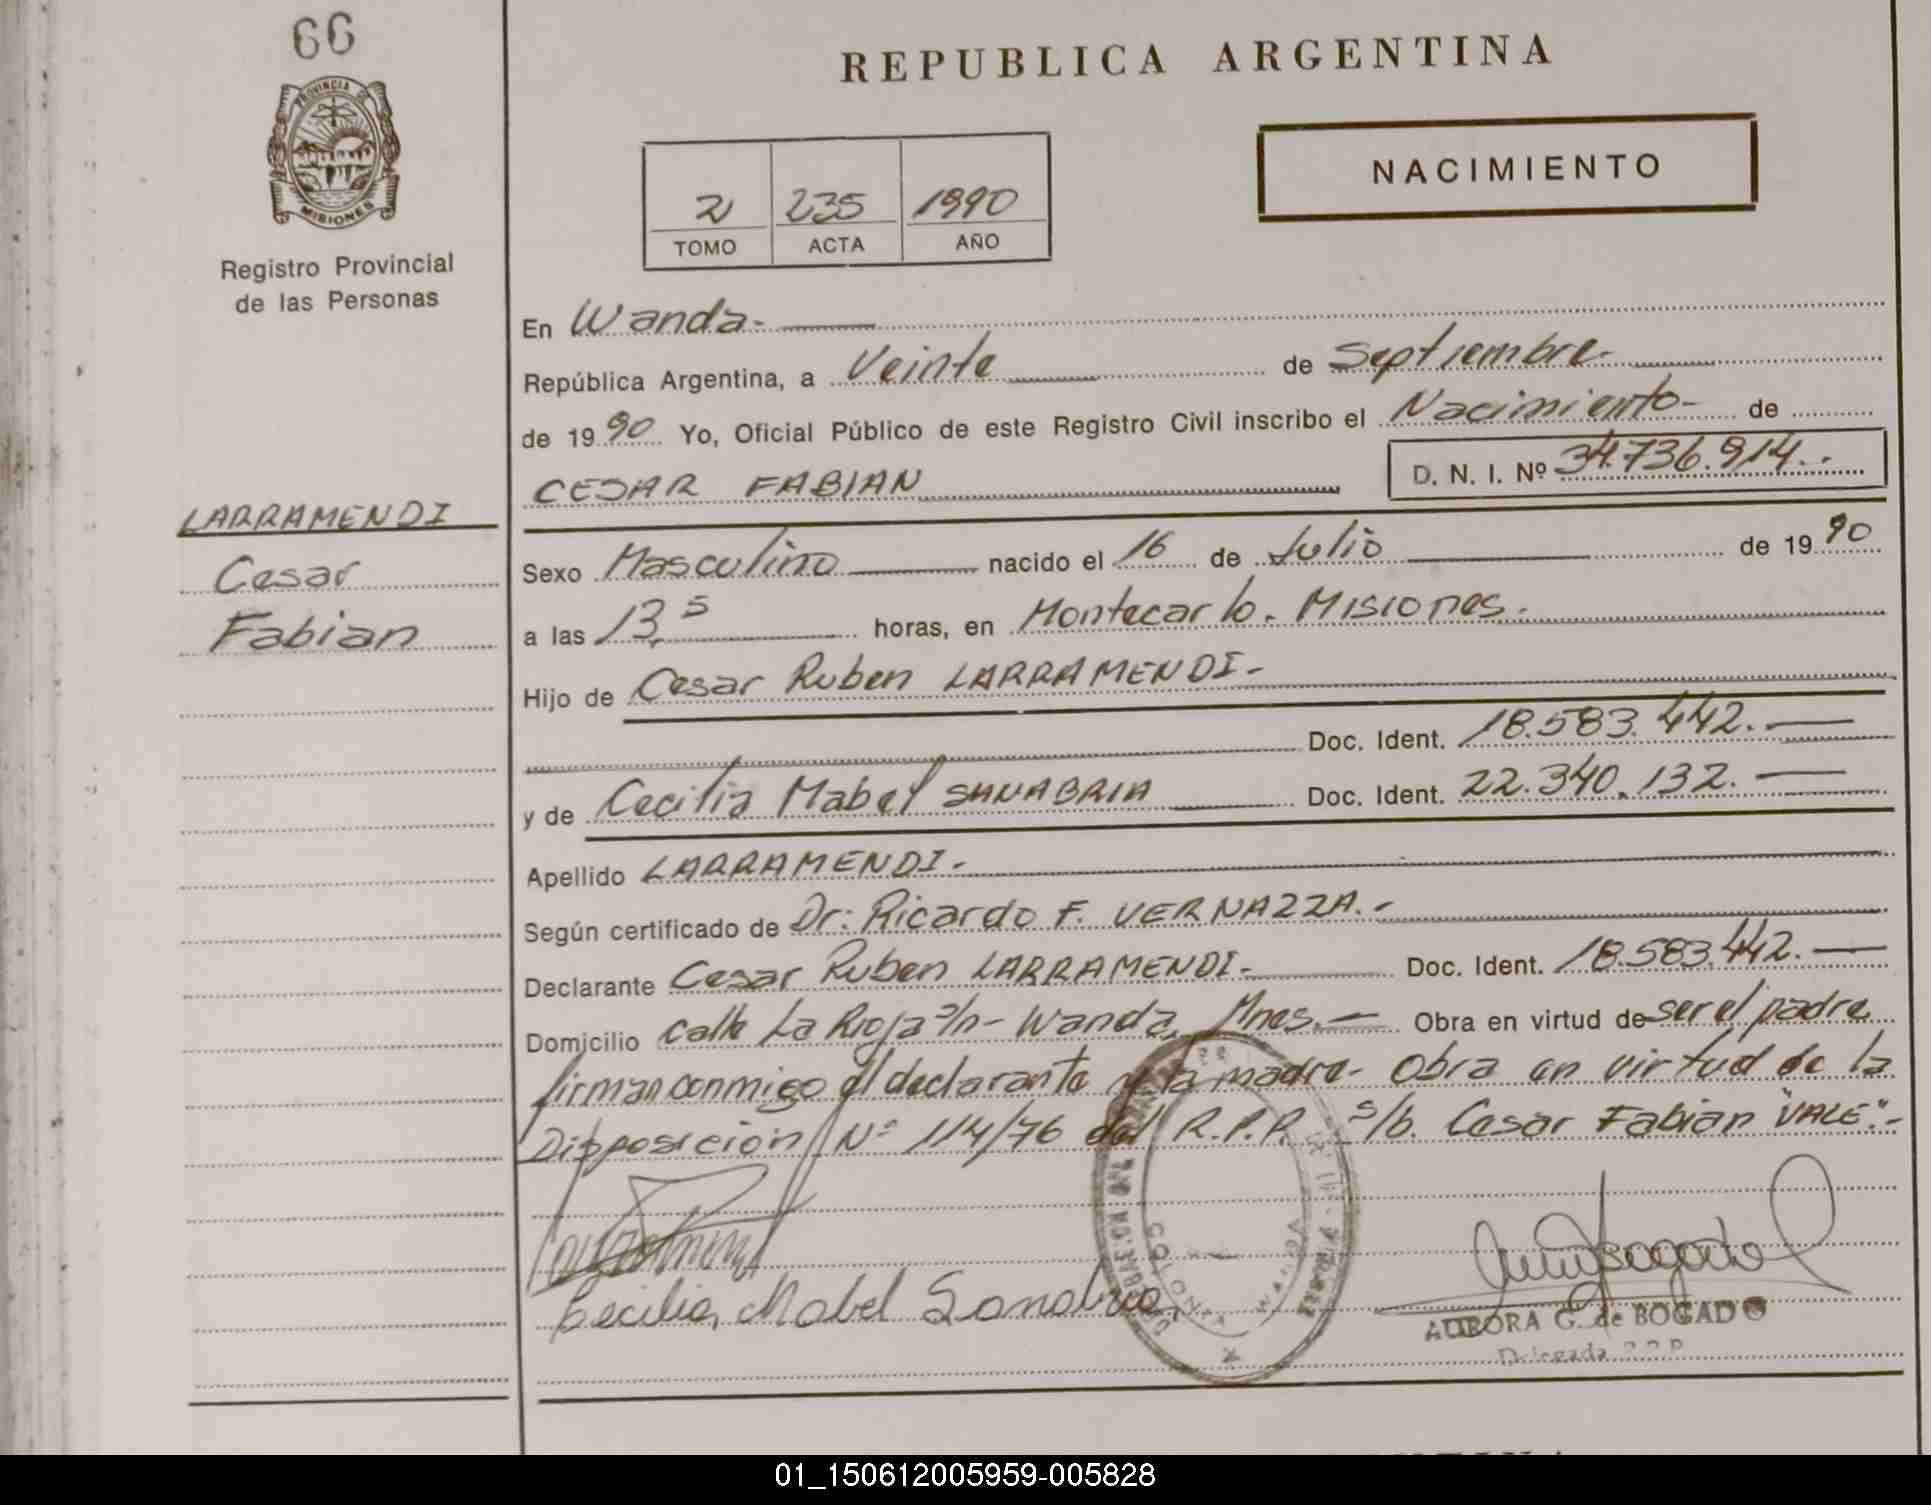 66
PROVINCIA DE
MISIONES
Registro Provincial
de las Personas
REPUBLICA ARGENTINA
2 235 1990
TOMO ACTA AÑO
NACIMIENTO
En Wanda.
República Argentina, a Veinte de Septiembre
de 1990 Yo, Oficial Público de este Registro Civil inscribo el Nacimiento de
CESAR FABIAN D. N. I. Nº 34.736.914.
LARRAMENDI
Cesar
Fabian
Sexo Masculino nacido el 16 de Julio de 1990
a las 13,5 horas, en Montecarlo. Misiones.
Hijo de Cesar Ruben LARRAMENDI-
Doc. Ident. 18.583.442.
y de Cecilia Mabel SANABRIA Doc. Ident. 22.340.132.
Apellido LARRAMENDI-
Según certificado de Dr: Ricardo F. VERNAZZA.-
Declarante Cesar Ruben LARRAMENDI- Doc. Ident. 18.583.442.
Domicilio calle La Rioja s/n- Wanda, Mnes.- Obra en virtud de ser el padre
firman conmigo el declarante y la madre- Obra en virtud de la
Disposicion Nº 114/76 del R.P.P. s/b. Cesar Fabian "VALE".-
Cecilia Mabel Sanabria
COLONIA WANDA
AURORA G. de BOGADO
Delegada
01_150612005959-005828